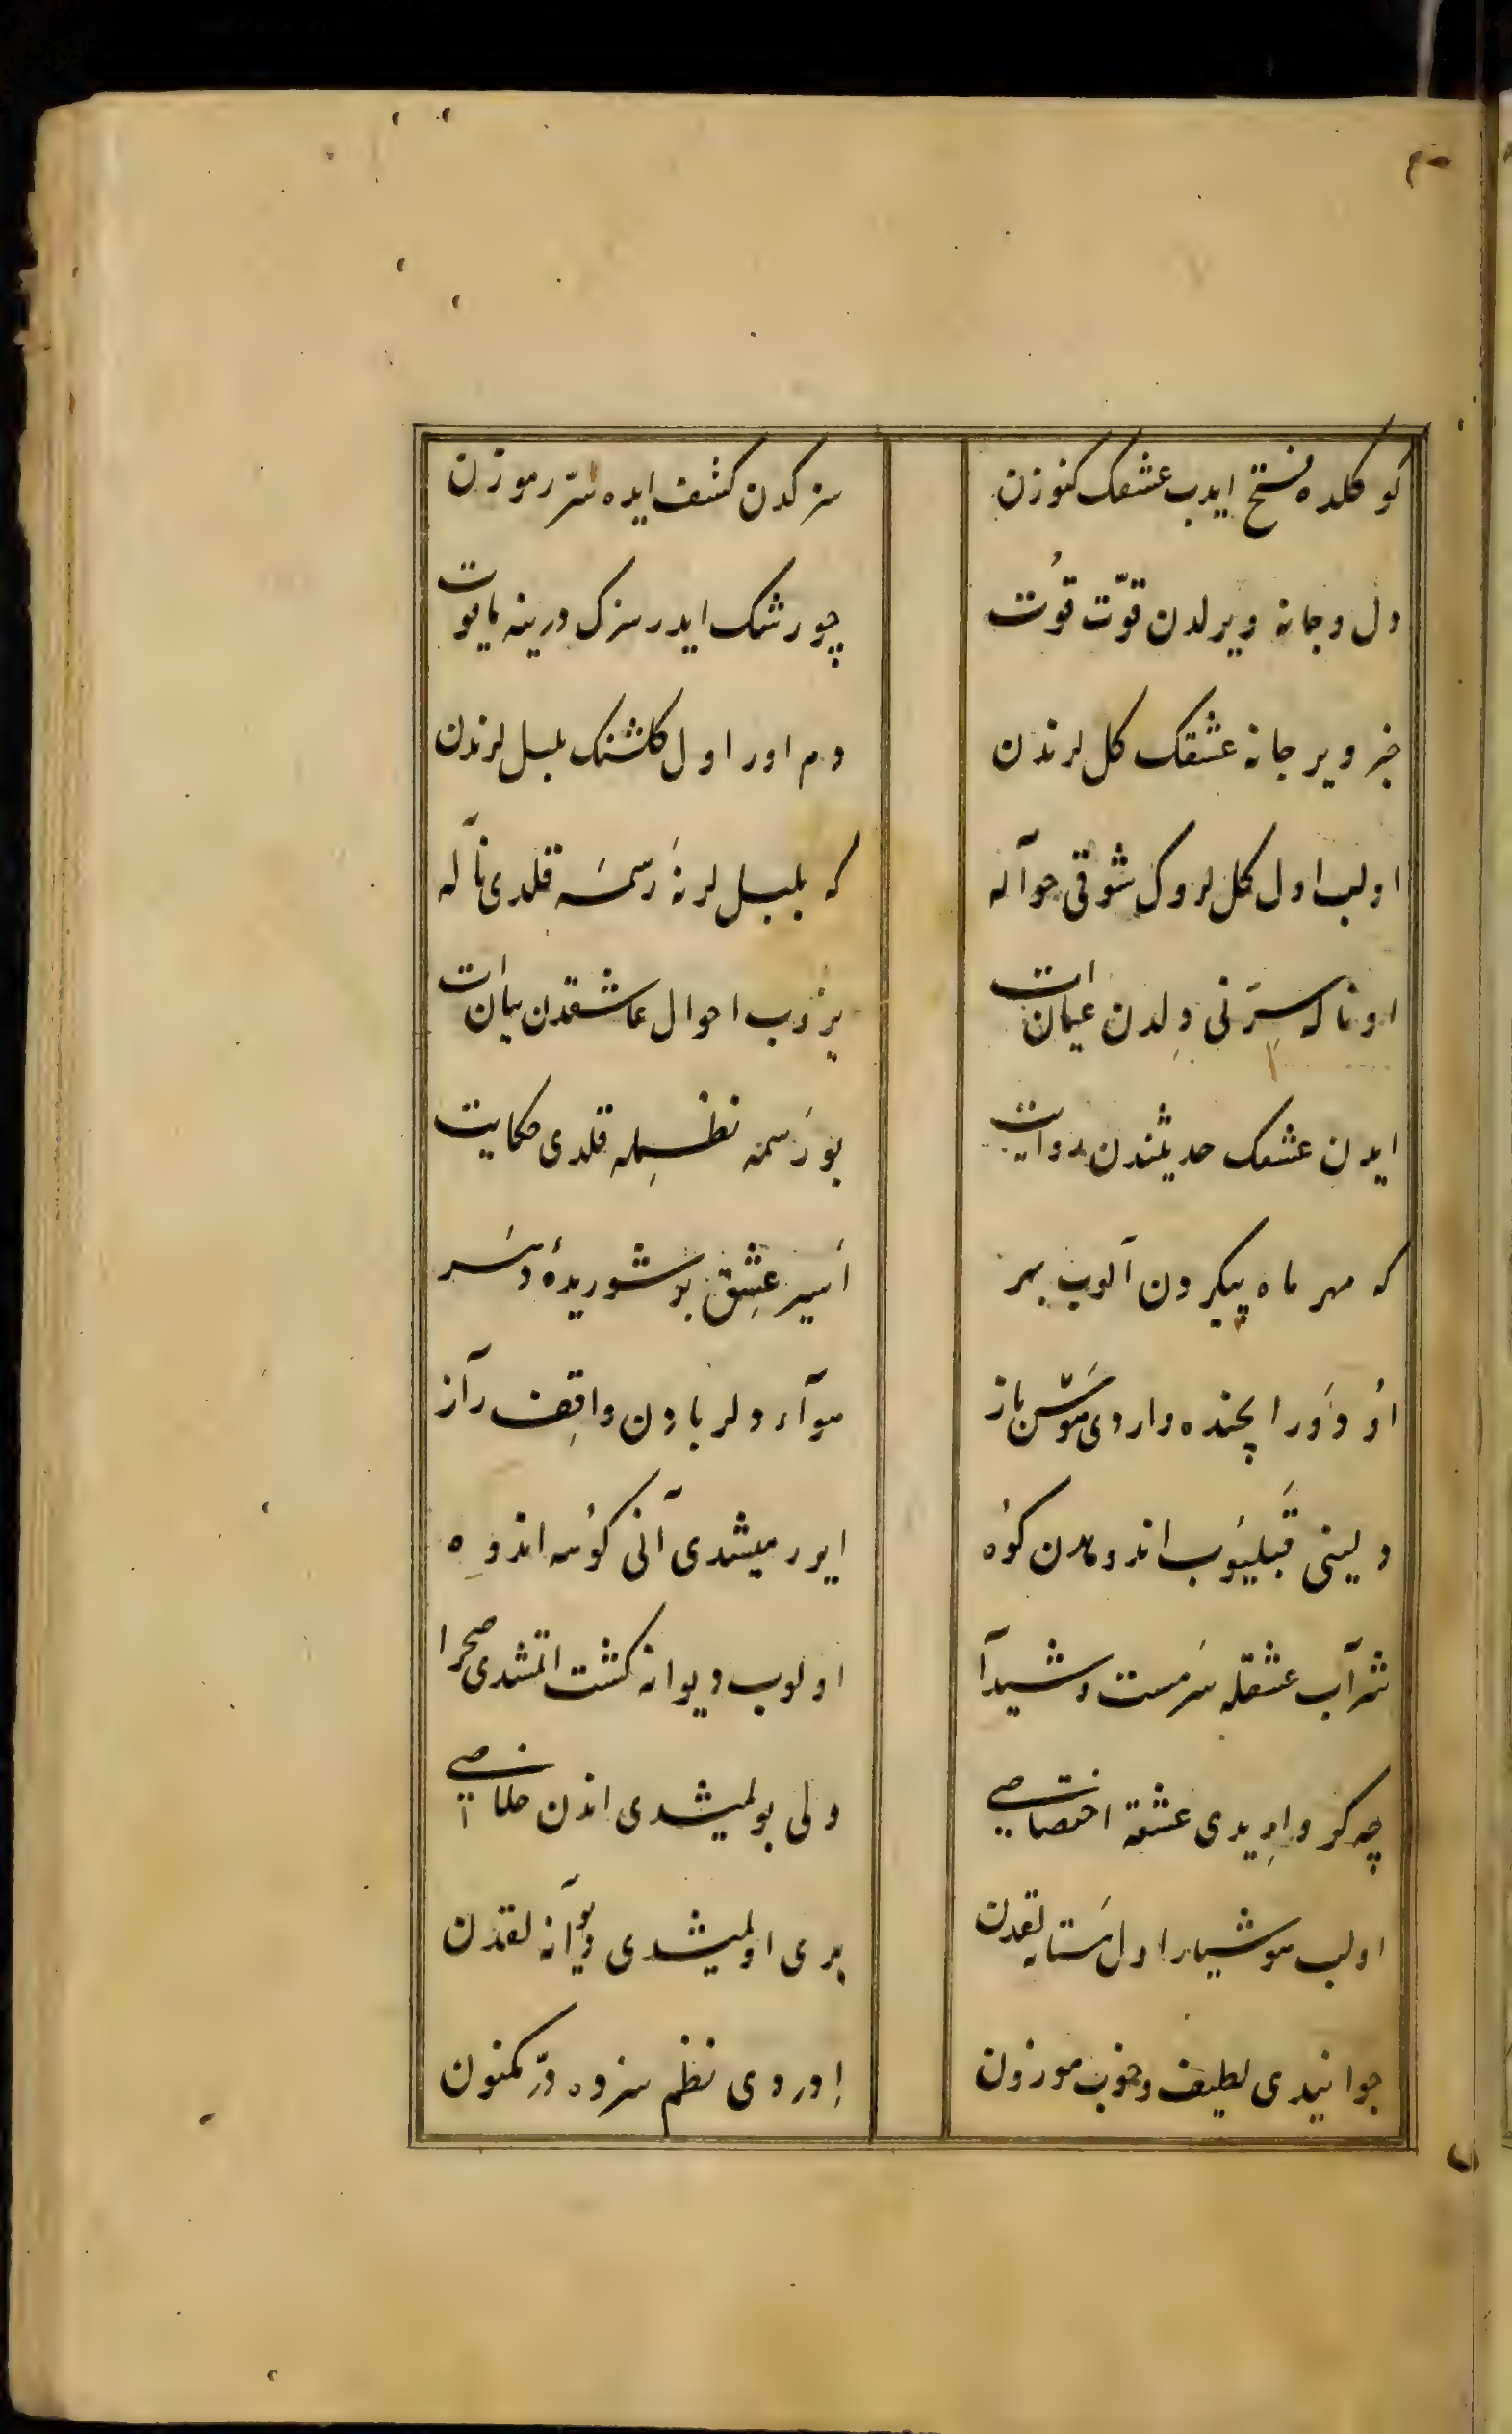 كوكلده فتح ايدب عشقك كنوزن
سزكدن كشف ايده سرّ رموزن
دل و جانه ويرلدن قوّت قُوت
چو رشك ايدر سزك درينه ياقوت
خبر وير جانه عشقك كل لرندن
دم اور اول كلشنك بلبل لرندن
اولب اول كل لروك شوقى حوآله
كه بلبل لر نه رسمه قلدى نآله
اوناكه سِرّنى دِلدن عيان ات
يزوب احوال عاشقدن بيان ات
ايدن عشقك حديثندن روايت
بو رسمه نظمله قلدى حكايت
كه مهر ماه پيكردن آلوب بهر
اَسير عشِق بو شوريدهٔ دَسر
اُو دَور ايچنده واردى باز
هوآء دلربادن واقِف رآز
دلينى قَبليُوب اندوهدن كوُه
ايورميشدى آنى كوُه اندوِه
شرآب عشقله سَرمست و شيدآ
اولوب ديوانه كشت اتمشدى صحرا
چه كر وارِيدى عشقه اختصاصى
ولى بولمشدى اندن خلاصى
اولب هوشيار اول مَستانه لقدن
برى اولمشدى ديوآنه لقدن
جوانيدى لطيف و خوب موزون
اِوردى نظم سزده دُرّ مكنون